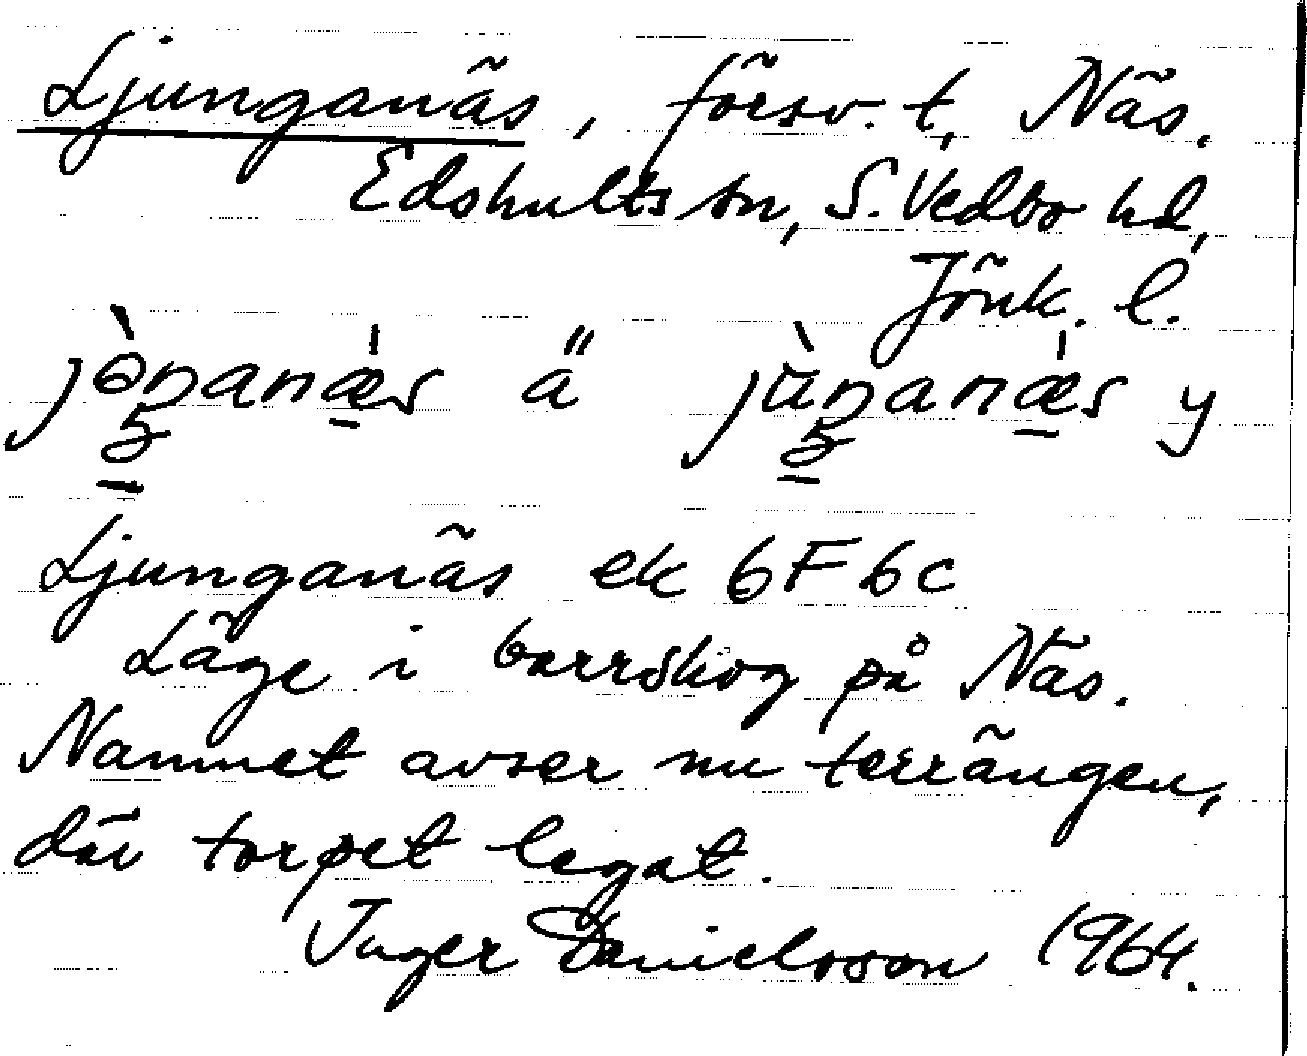 Ljunganäs, försv. t. Näs.
Edshults sn, S. Vedbo hd,
Jönk. l.
jɵ̀ŋanæ̠̀s ä jùŋanæ̠̀s y
Ljunganäs ek 6F6c
Läge i barrskog på Näs.
Namnet avser nu terrängen,
där torpet legat.
Inger Danielsson 1964.